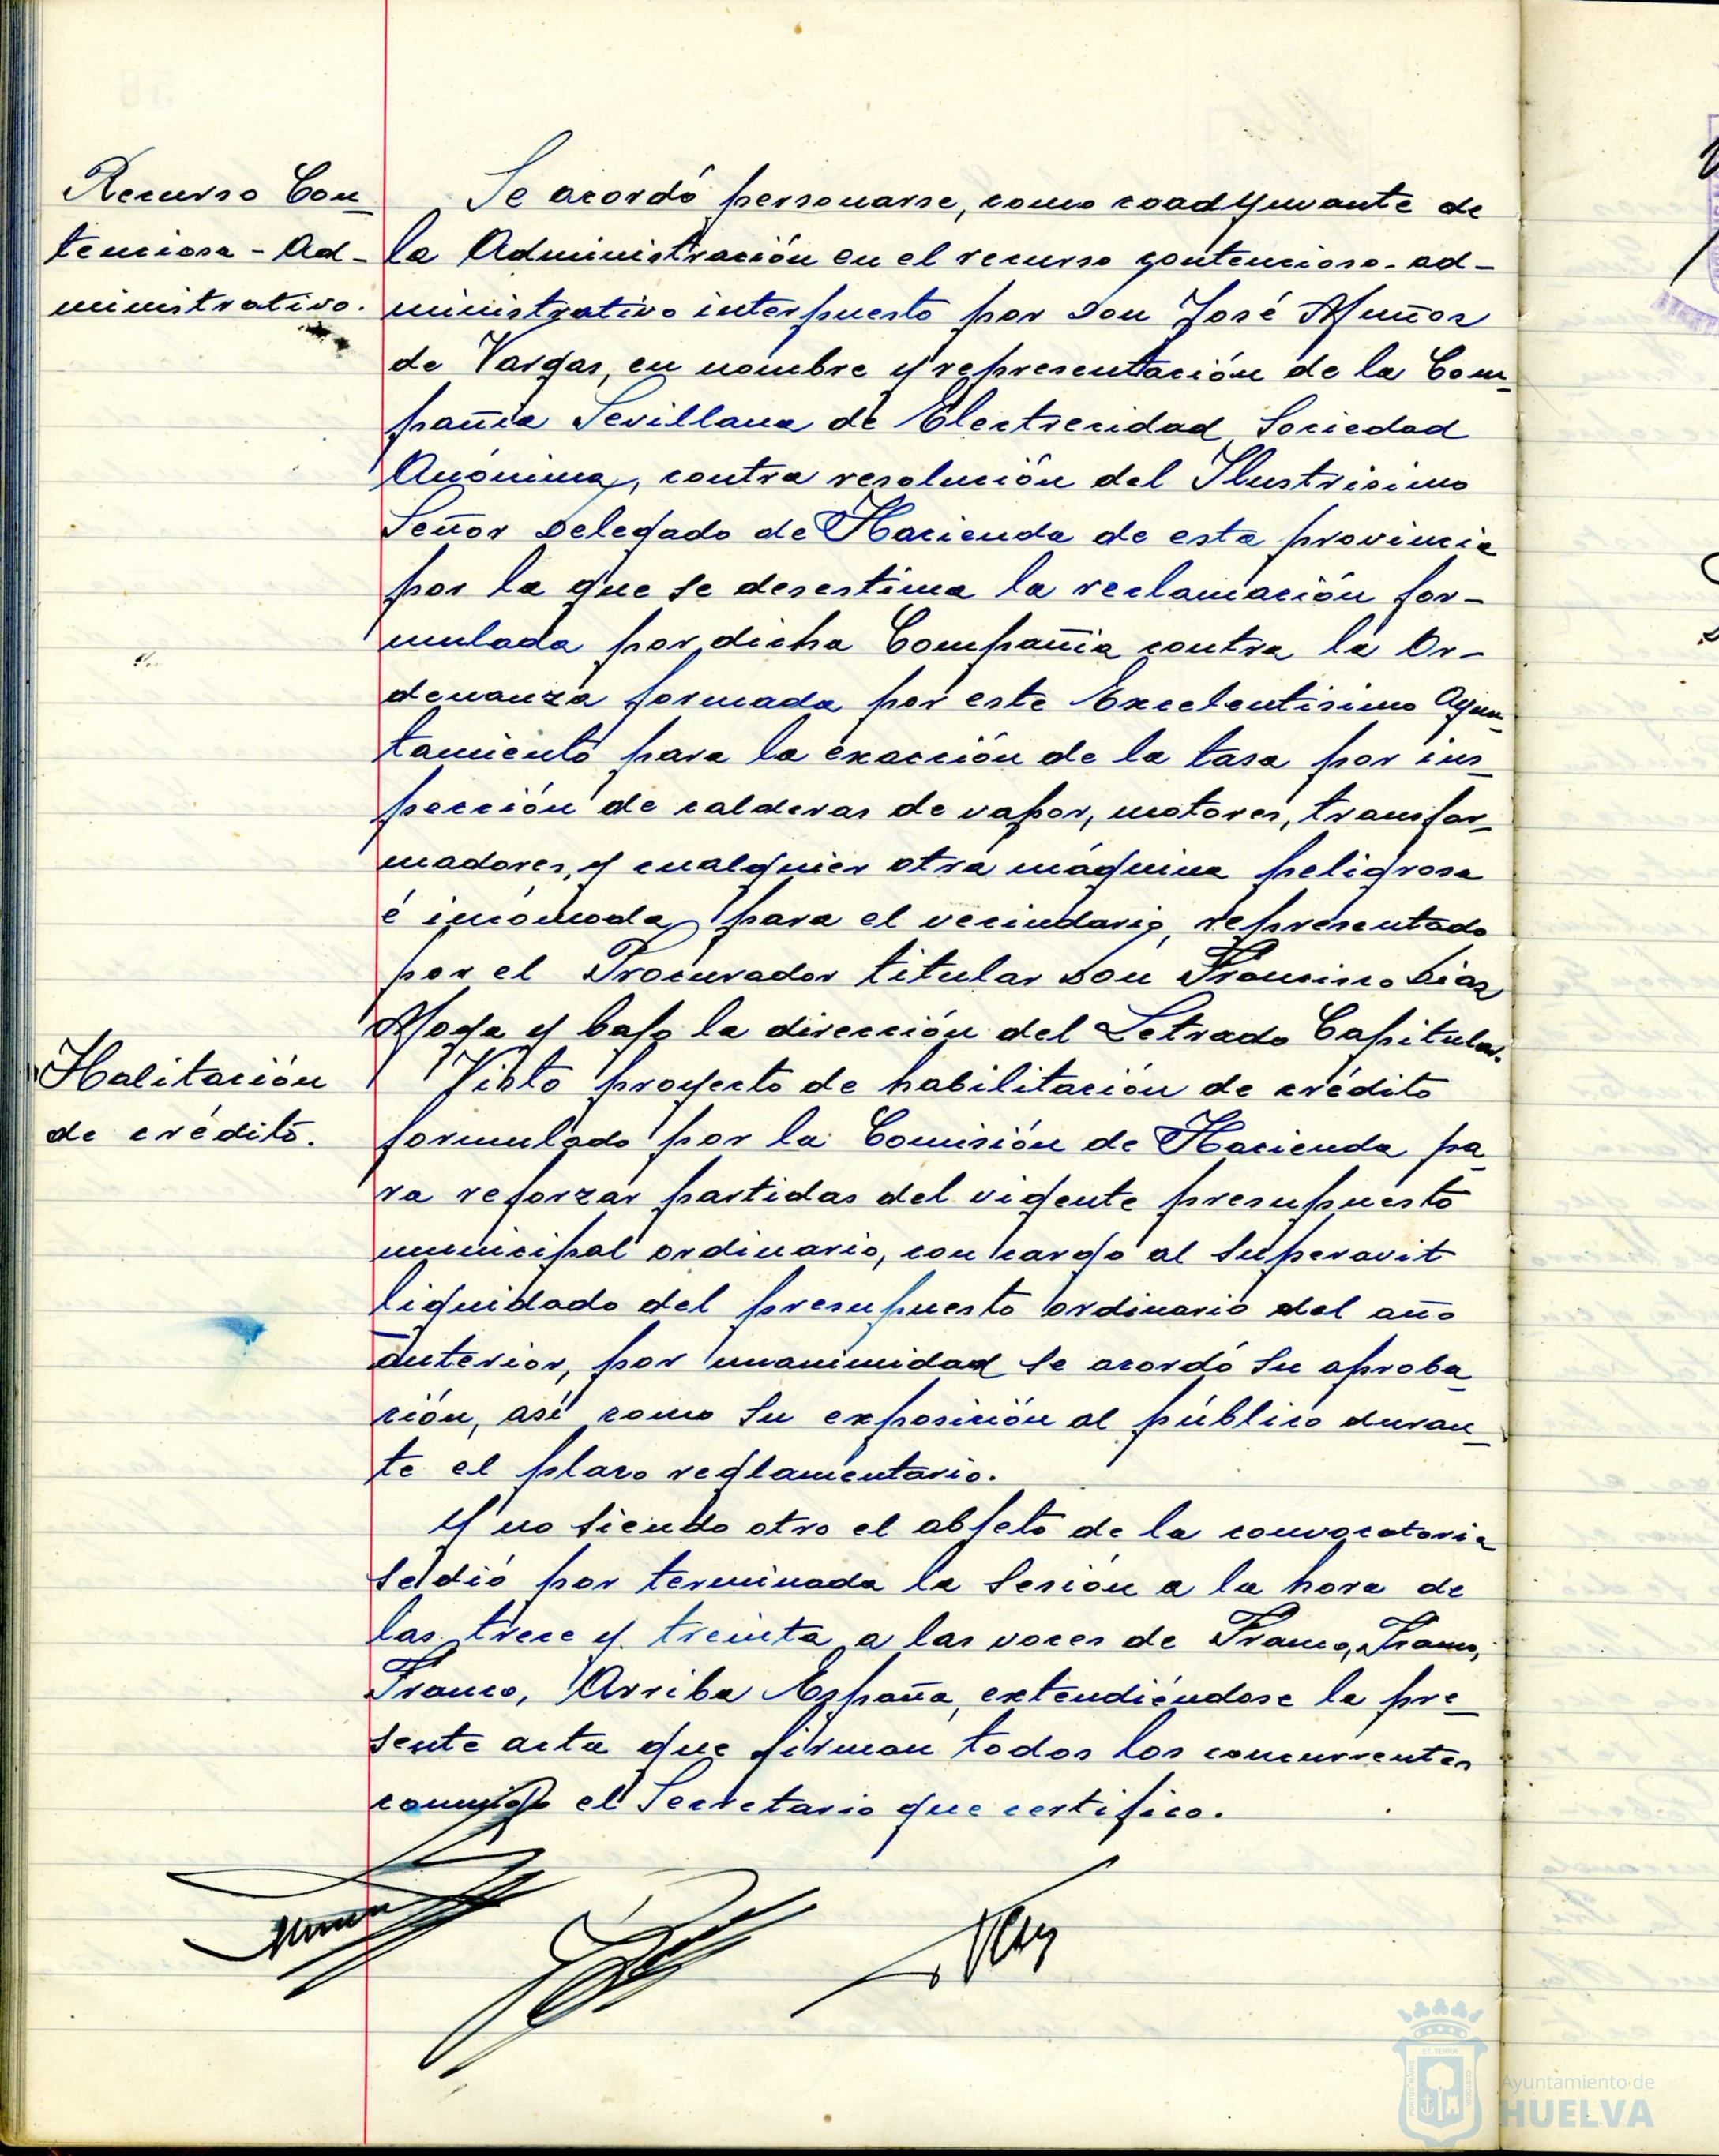 Recurso Con_
tencioso - Ad-
ministrativo.
Se acordó personarse, como coadyuvante de
la Administración en el recurso contencioso-ad-
ministrativo interpuesto por Don José Muñoz
de Vargas, en nombre y representación de la Com_
pañia Sevillana de Electricidad Sociedad
Anónima, contra resolución del Ilustrisimo
Señor Delegado de Hacienda de esta provincia
por la que se desestima la reclamación for-
mulada por dicha Compañia contra la Or-
denanza formada por este Excelentisimo Ayun_
tamiento para la exacción de la tasa por ins_
pección de calderas de vapor, motores, transfor_
madores, y cualquier otra máquina peligrosa
é incómoda para el vecindario, representado
por el Procurador titular Don Francisco Diaz
Moya y bajo la dirección del Letrado Capitular.
Halitación
de crédito.
Visto proyecto de habilitación de crédito
formulado por la Comisión de Hacienda pa_
ra reforzar partidas del vigente presupuesto
municipal ordinario, con cargo al Superavit
liquidado del presupuesto ordinario del año
anterior, por unanimidad se acordó su aproba_
ción, así como su exposición al público duran_
te el plazo reglamentario.
Y no siendo otro el objeto de la convocatoria
se dió por terminada la Sesión a la hora de
las trece y treinta a las voces de Franco, Franco,
Franco, Arriba España, extendiéndose la pre_
sente acta que firman todos los concurrentes
conmigo el Secretario que certifico.
Ayuntamiento de
HUELVA